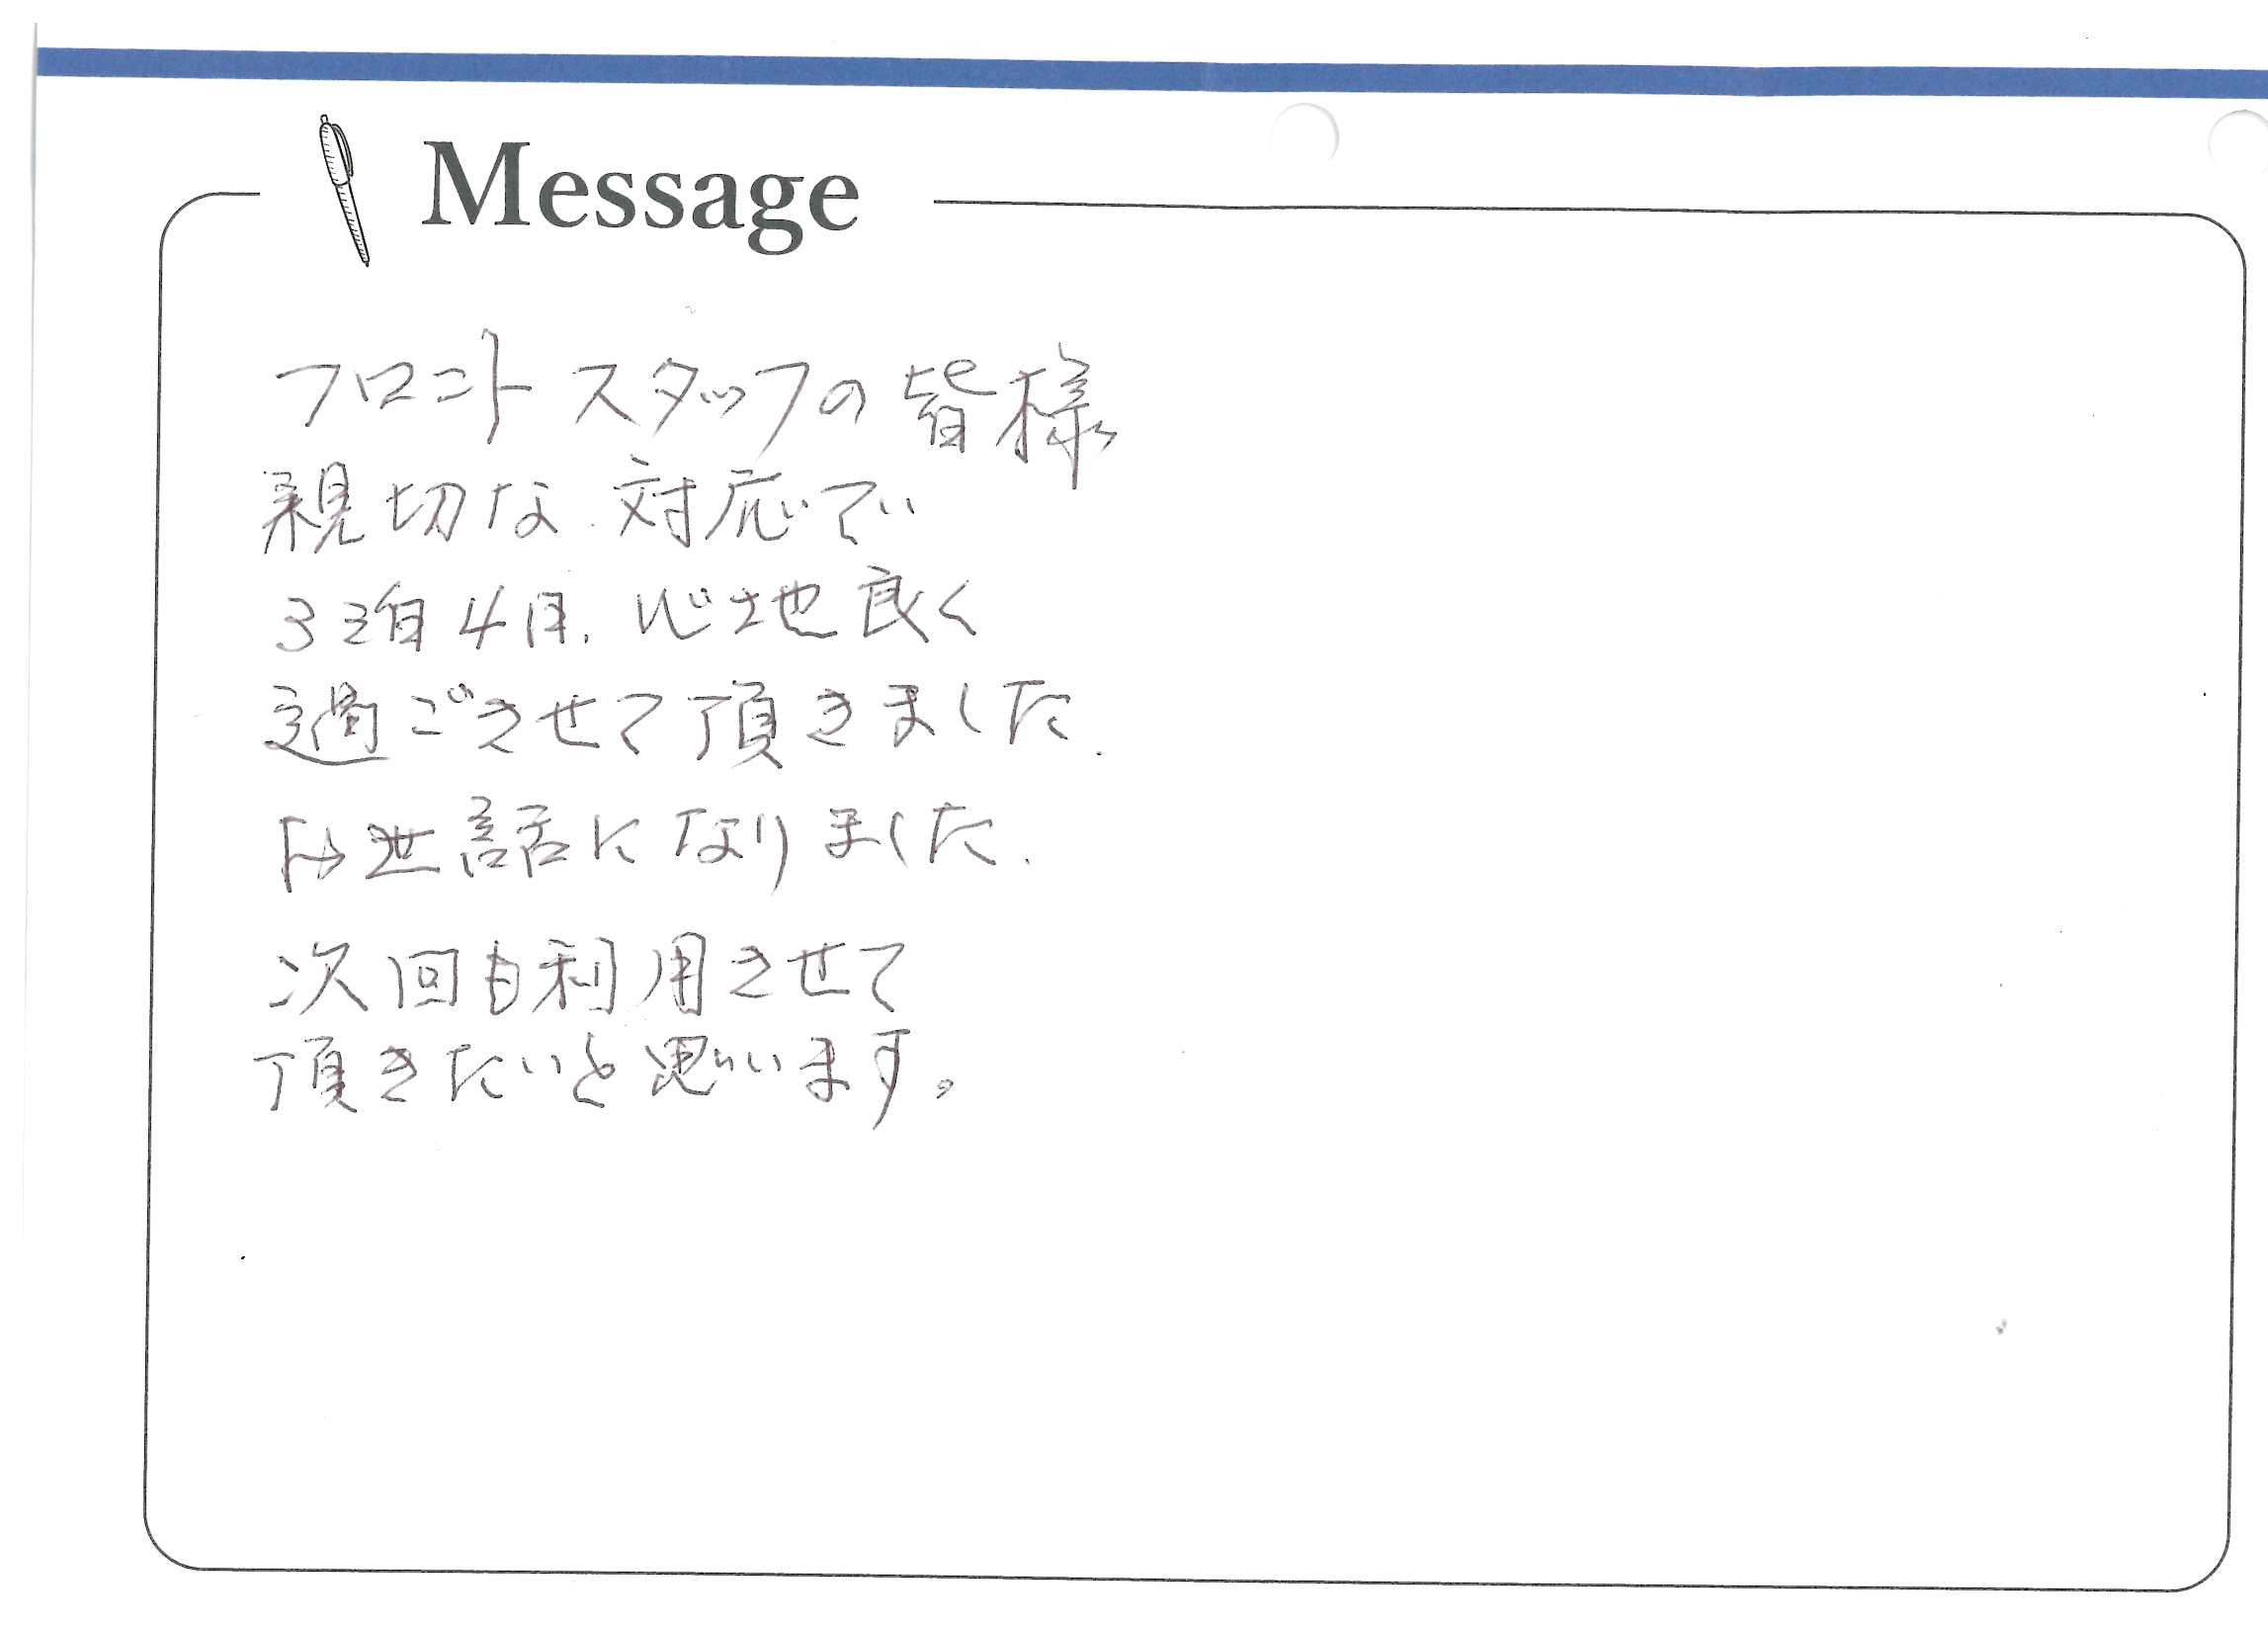 Message
フロントスタッフの皆様
親切な対応で
3泊4日、心地良く
過ごさせて頂きました.
お世話になりました.
次回も利用させて
頂きたいと思います。